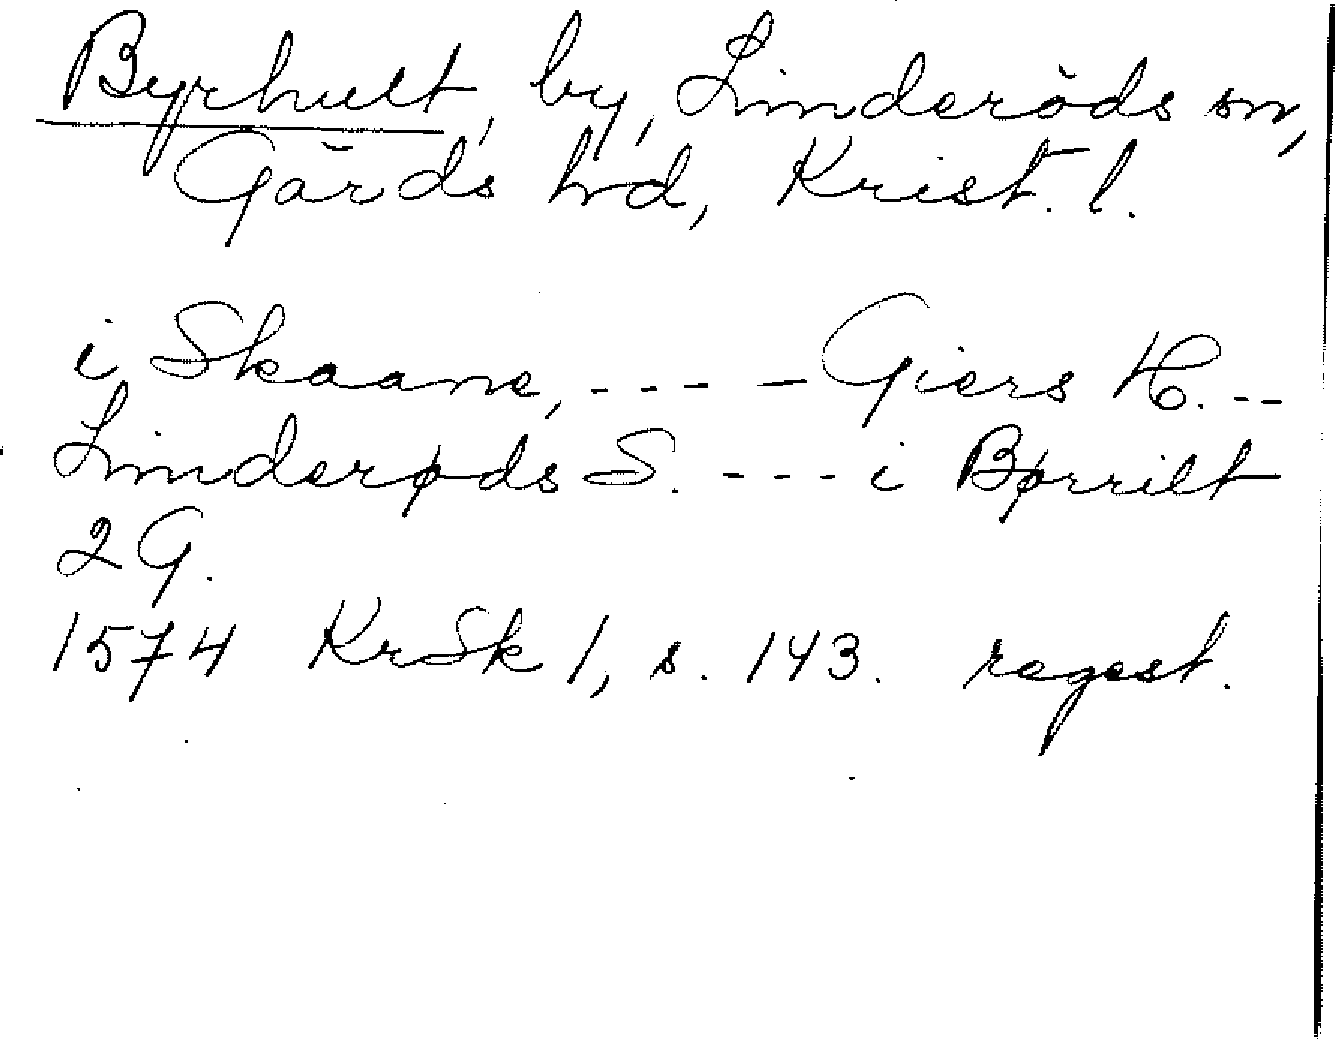 Byrhult, by, Linderöds sn,
Gärds hd, Krist. l.
i Skaane, - - - - Giers H. - -
Linderøds S. - - - i Børrilt
2 G.
1574 KrSk 1, s. 143. regest.